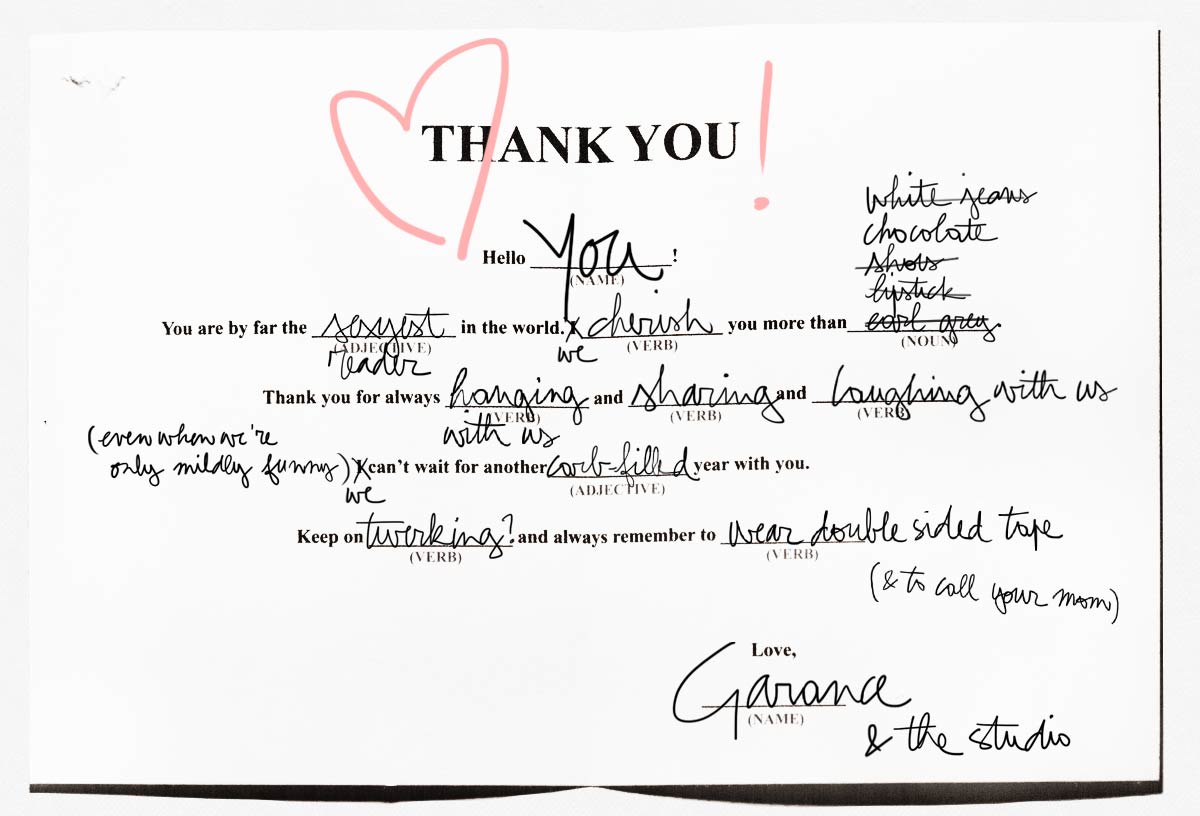 THANK YOU!
white jeans
chocolate
shoes
lipstick
earl grey
Hello You!
(NAME)
You are by far the sexyest in the world. X cherish you more than
(ADJECTIVE) (VERB) (NOUN)
reader we
Thank you for always hanging and sharing and laughing with us
(VERB) (VERB) (VERB)
with us
(even when we're
only mildly funny) X can't wait for another carb-filled year with you.
we (ADJECTIVE)
Keep on twerking? and always remember to wear double sided tape
(VERB) (VERB)
(& to call your mom)
Love,
Garance
(NAME)
& the studio